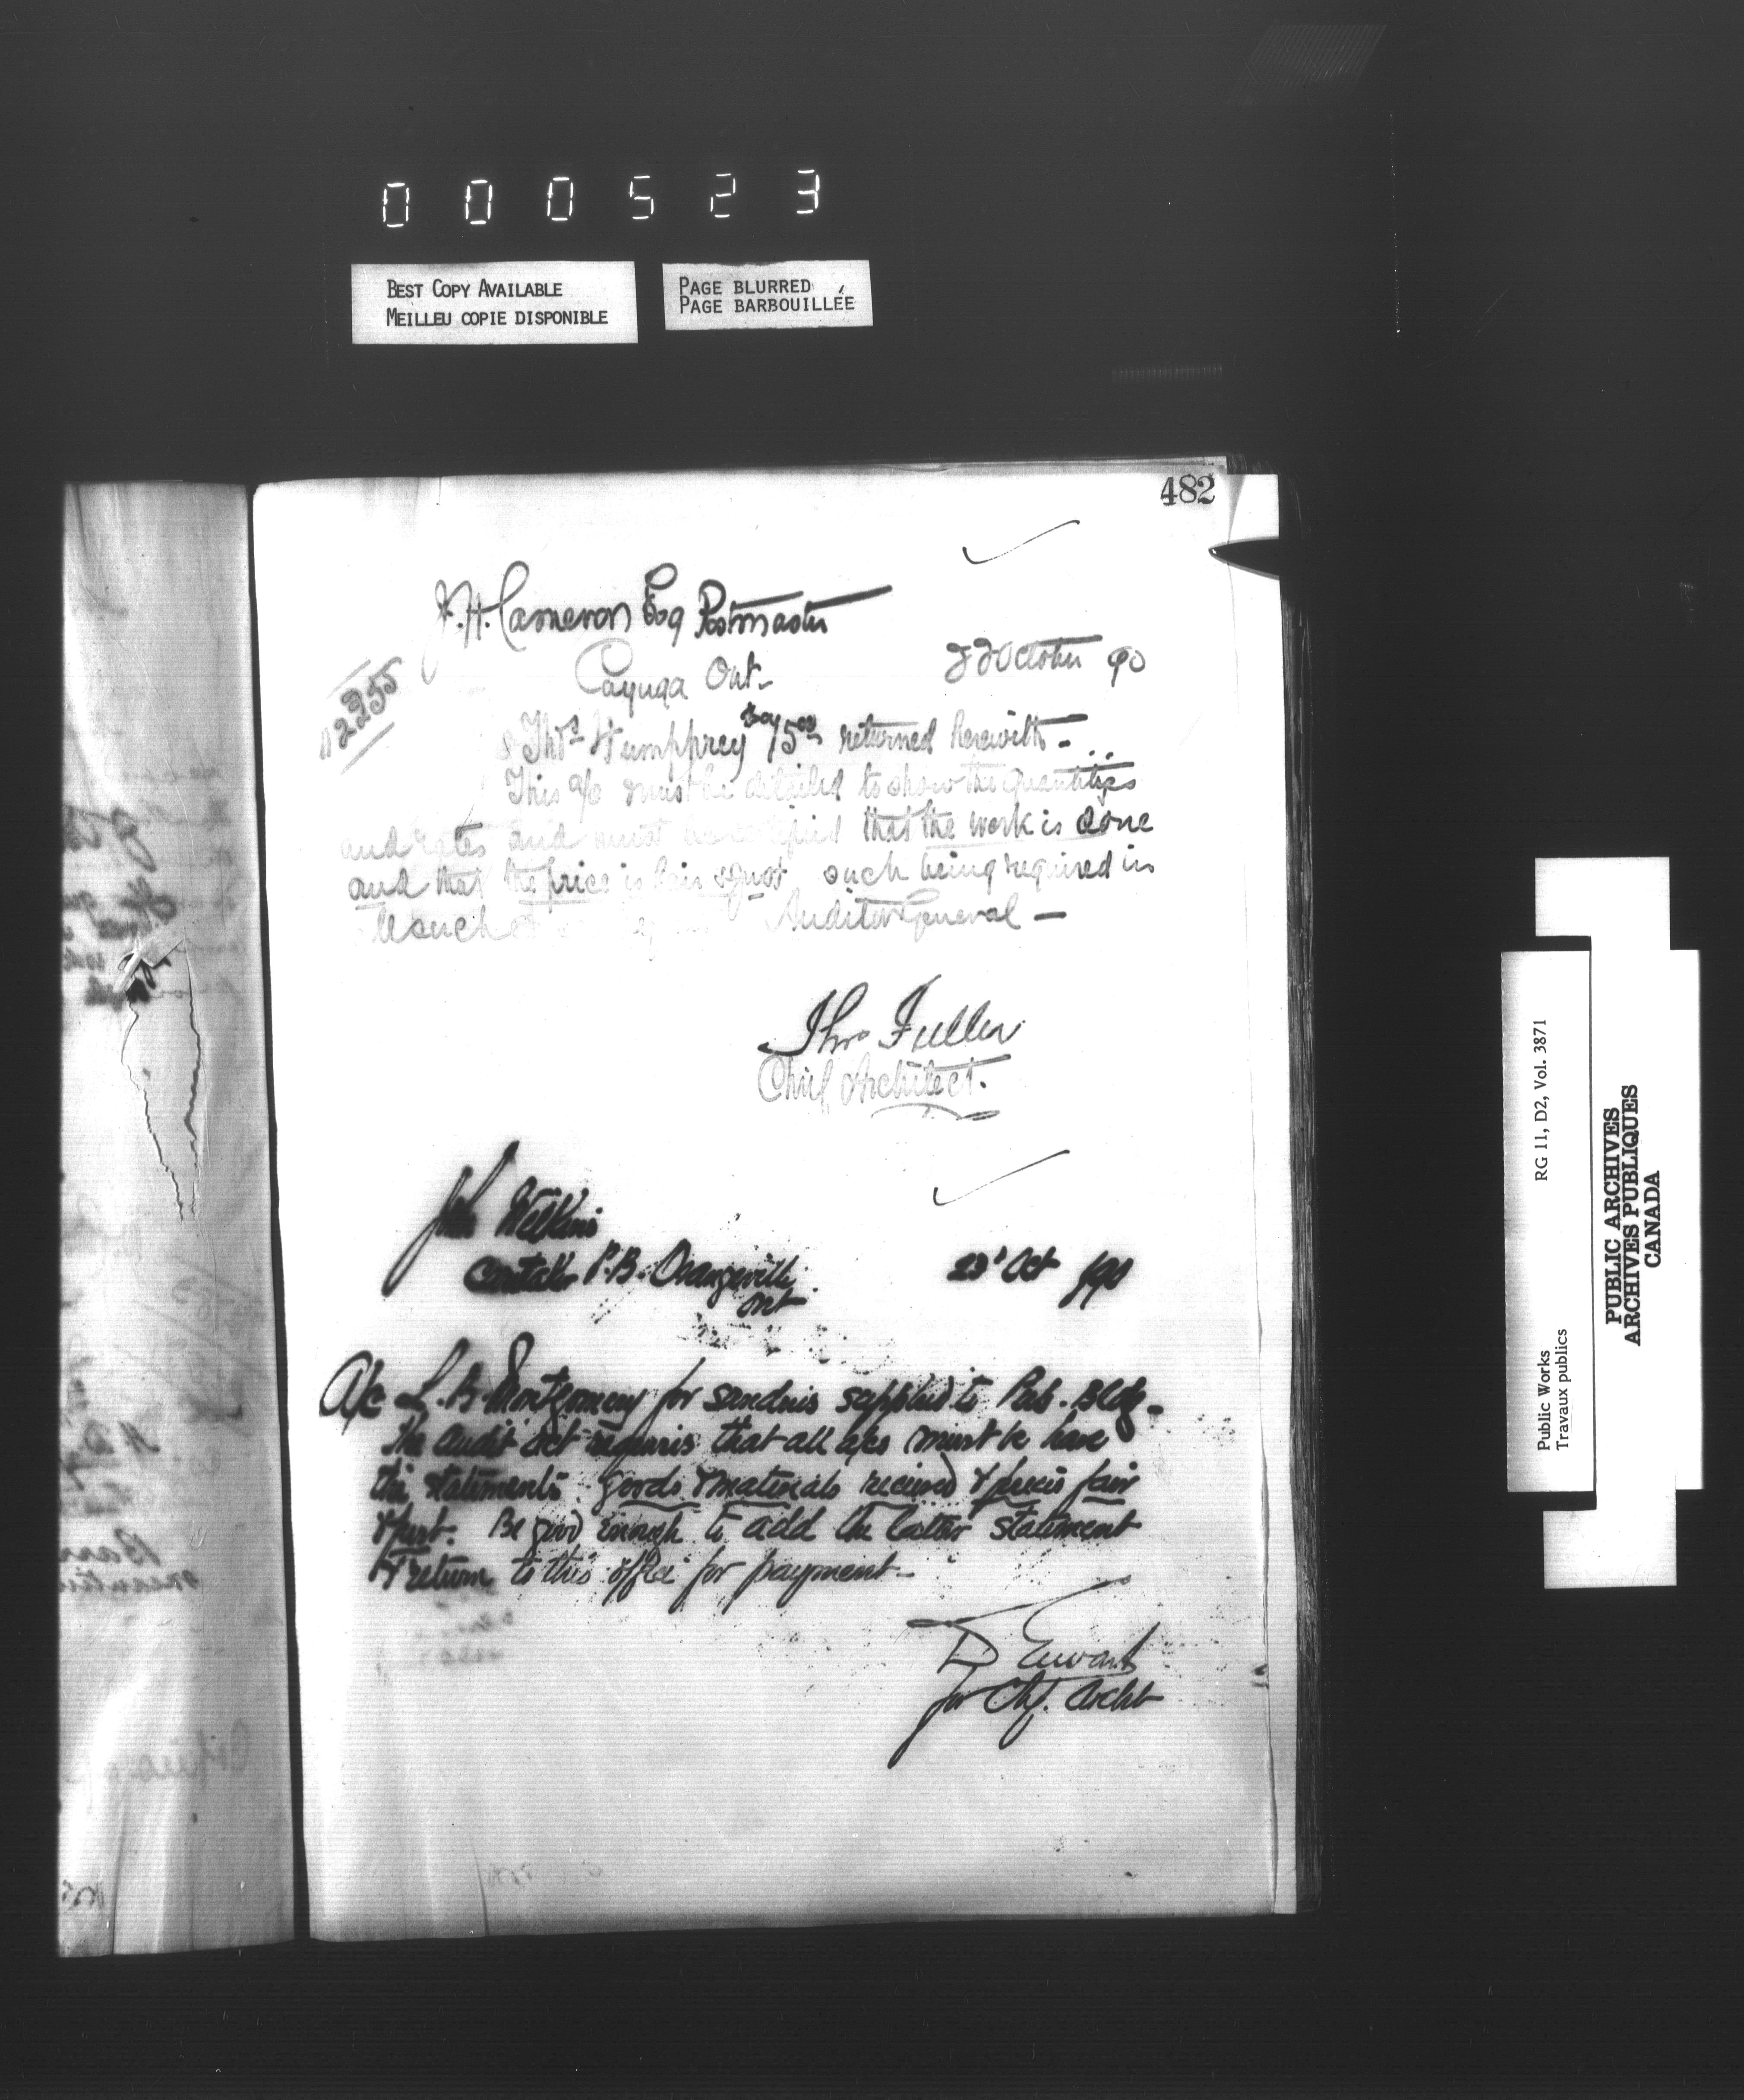 000523
BEST COPY AVAILABLE
MEILLEU COPIE DISPONIBLE
PAGE BLURRED
PAGE BARBOUILLÉE
482
J. H. Cameron Esq Postmaster
Cayuga Ont.
October 90
12255
Thos Humphrey returned herewith -
This a/c must be detailed to show the quantities
and rates and must be certified that the work is done
and that the price is fair & just such being required in
all such Auditor General -
Thos Fuller
Chief Architect.
John
Caretaker P.B. Orangeville
Ont
23' Oct /90
A/c L. B. Montgomery for sundries supplied to Pub. Bldg -
The Audit Act requires that all a/cs must be have
the statements goods & materials received & prices fair
& just. Be good enough to add the latter statement
& return to this office for payment -
D Ewart
for Chf. Archt
RG 11, D2, Vol. 3871
Public Works
Travaux publics
PUBLIC ARCHIVES
ARCHIVES PUBLIQUES
CANADA